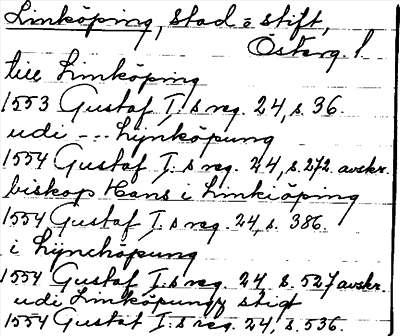 Linköping, stad o stift,
Österg. l
till Linköping
1553 Gustaf I.s reg. 24, s. 36.
udi --- Lijnköpung
1554 Gustaf I.s reg. 24, s. 272 avskr.
biskop Hans i Linkiöping
1554 Gustaf I.s reg. 24, s. 386.
i Lijncköpung
1554 Gustaf I.s reg. 24 s. 527 avskr.
udi Linköpungz stigt
1554 Gustaf I.s reg. 24, s. 536.